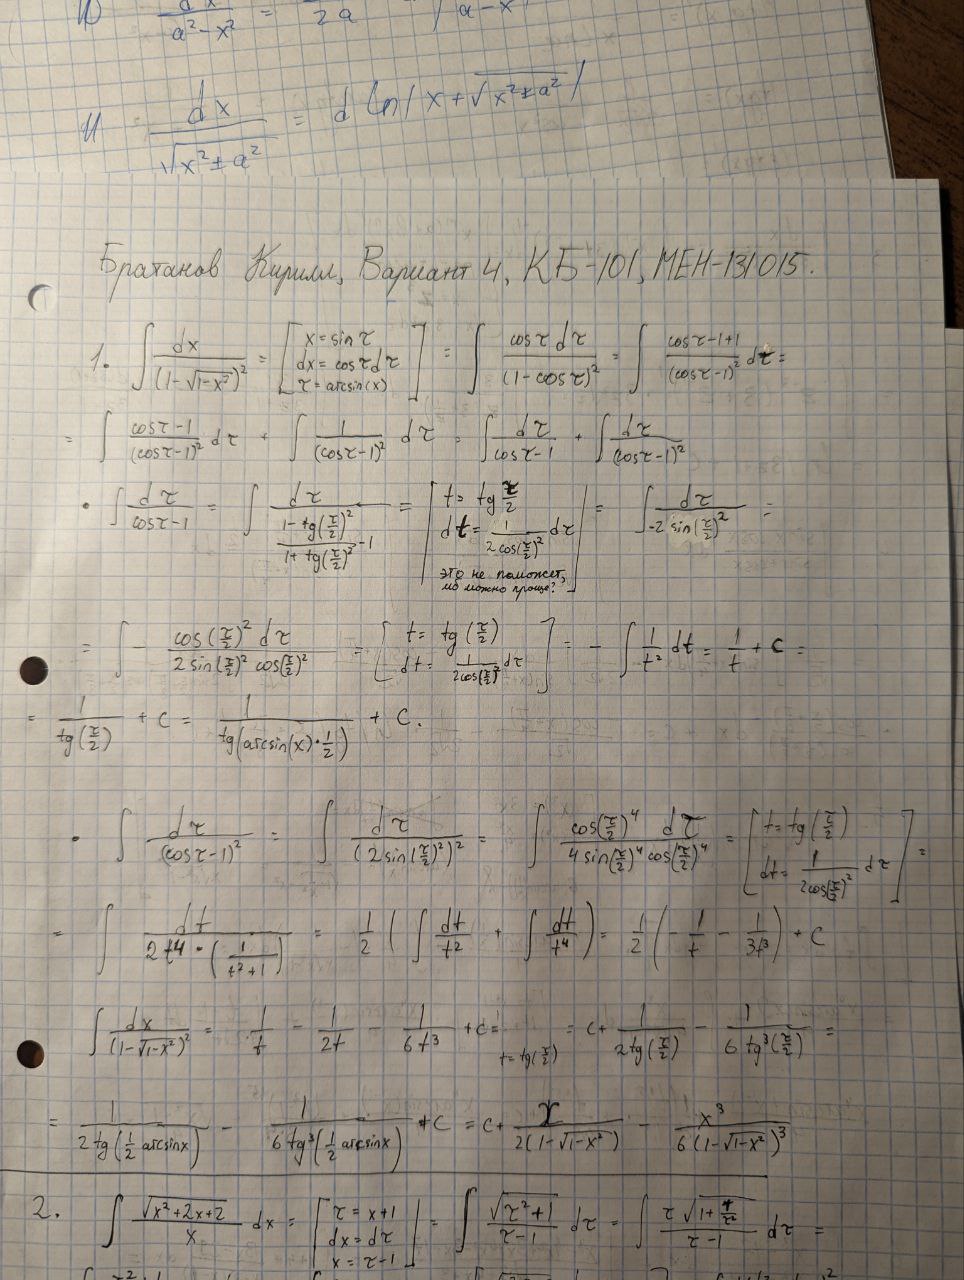 a² - x² = 2a a - x
dx / √(x² ± a²) = d ln | x + √(x² ± a²) |
Братанов Кирилл, Вариант 4, КБ-101, МЕН-131015.
1. ∫ dx / (1-√(1-x²))² = [ x = sin τ ; dx = cos τ dτ ; τ = arcsin(x) ] = ∫ cos τ dτ / (1 - cos τ)² = ∫ (cos τ - 1 + 1) / (cos τ - 1)² dτ =
= ∫ (cos τ - 1) / (cos τ - 1)² dτ + ∫ 1 / (cos τ - 1)² dτ = ∫ dτ / (cos τ - 1) + ∫ dτ / (cos τ - 1)²
• ∫ dτ / (cos τ - 1) = ∫ dτ / ((1 - tg(τ/2)²) / (1 + tg(τ/2)²) - 1) = [ t = tg τ/2 ; dt = 1 / (2cos(τ/2)²) dτ ; это не поможет, можно проще? ] = ∫ dτ / (-2 sin(τ/2)²) =
= ∫ - cos(τ/2)² dτ / (2 sin(τ/2)² cos(τ/2)²) = [ t = tg(τ/2) ; dt = 1 / (2cos(τ/2)²) dτ ] = - ∫ 1/t² dt = 1/t + C =
= 1 / tg(τ/2) + C = 1 / tg(arcsin(x)·1/2) + C.
• ∫ dτ / (cos τ - 1)² = ∫ dτ / (2 sin(τ/2)²)² = ∫ cos(τ/2)⁴ dτ / (4 sin(τ/2)⁴ cos(τ/2)⁴) = [ t = tg(τ/2) ; dt = 1 / (2cos(τ/2)²) dτ ] =
= ∫ dt / (2t⁴ · (1 / (t²+1))) = 1/2 ( ∫ dt/t² + ∫ dt/t⁴ ) = 1/2 ( - 1/t - 1/(3t³) ) + C
∫ dx / (1-√(1-x²))² = 1/t - 1/(2t) - 1/(6t³) + C = t = tg(τ/2) = C + 1 / (2 tg(τ/2)) - 1 / (6 tg³(τ/2)) =
= 1 / (2 tg(1/2 arcsin x)) - 1 / (6 tg³(1/2 arcsin x)) + C = C + x / (2(1-√(1-x²))) - x³ / (6(1-√(1-x²))³)
2. ∫ √(x²+2x+2) / x dx = [ τ = x+1 ; dx = dτ ; x = τ-1 ] = ∫ √(τ²+1) / (τ-1) dτ = ∫ τ√(1+1/τ²) / (τ-1) dτ =